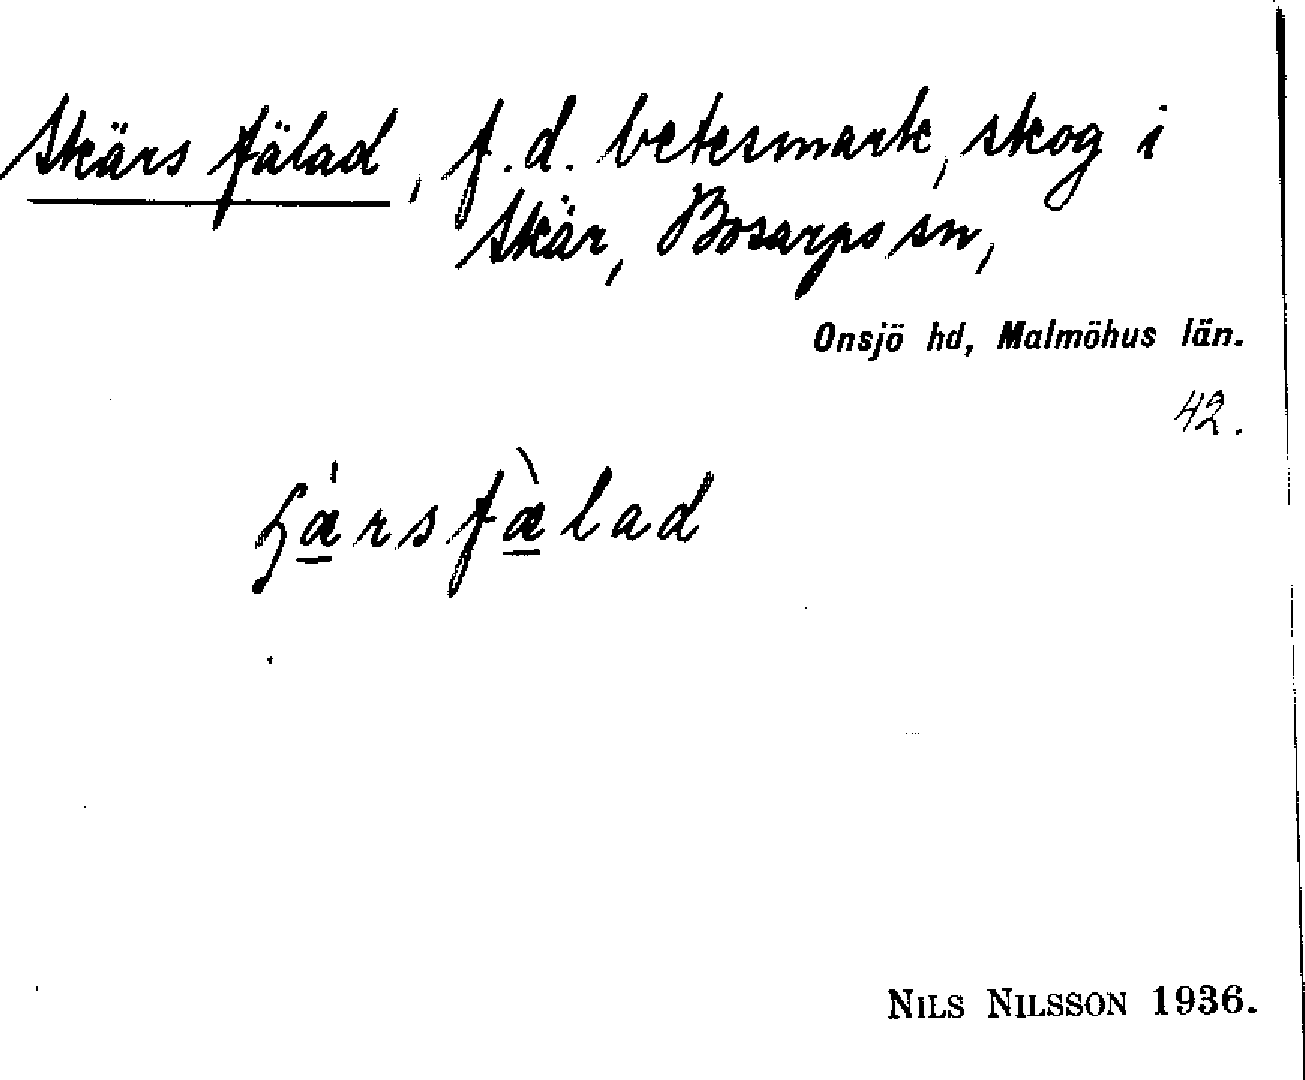 Skärs fälad, f.d. betesmark, skog i
Skär, Bosarps sn,
Onsjö hd, Malmöhus län.
42.
ʂǽ̲rsfæ̲̀lad
NILS NILSSON 1936.